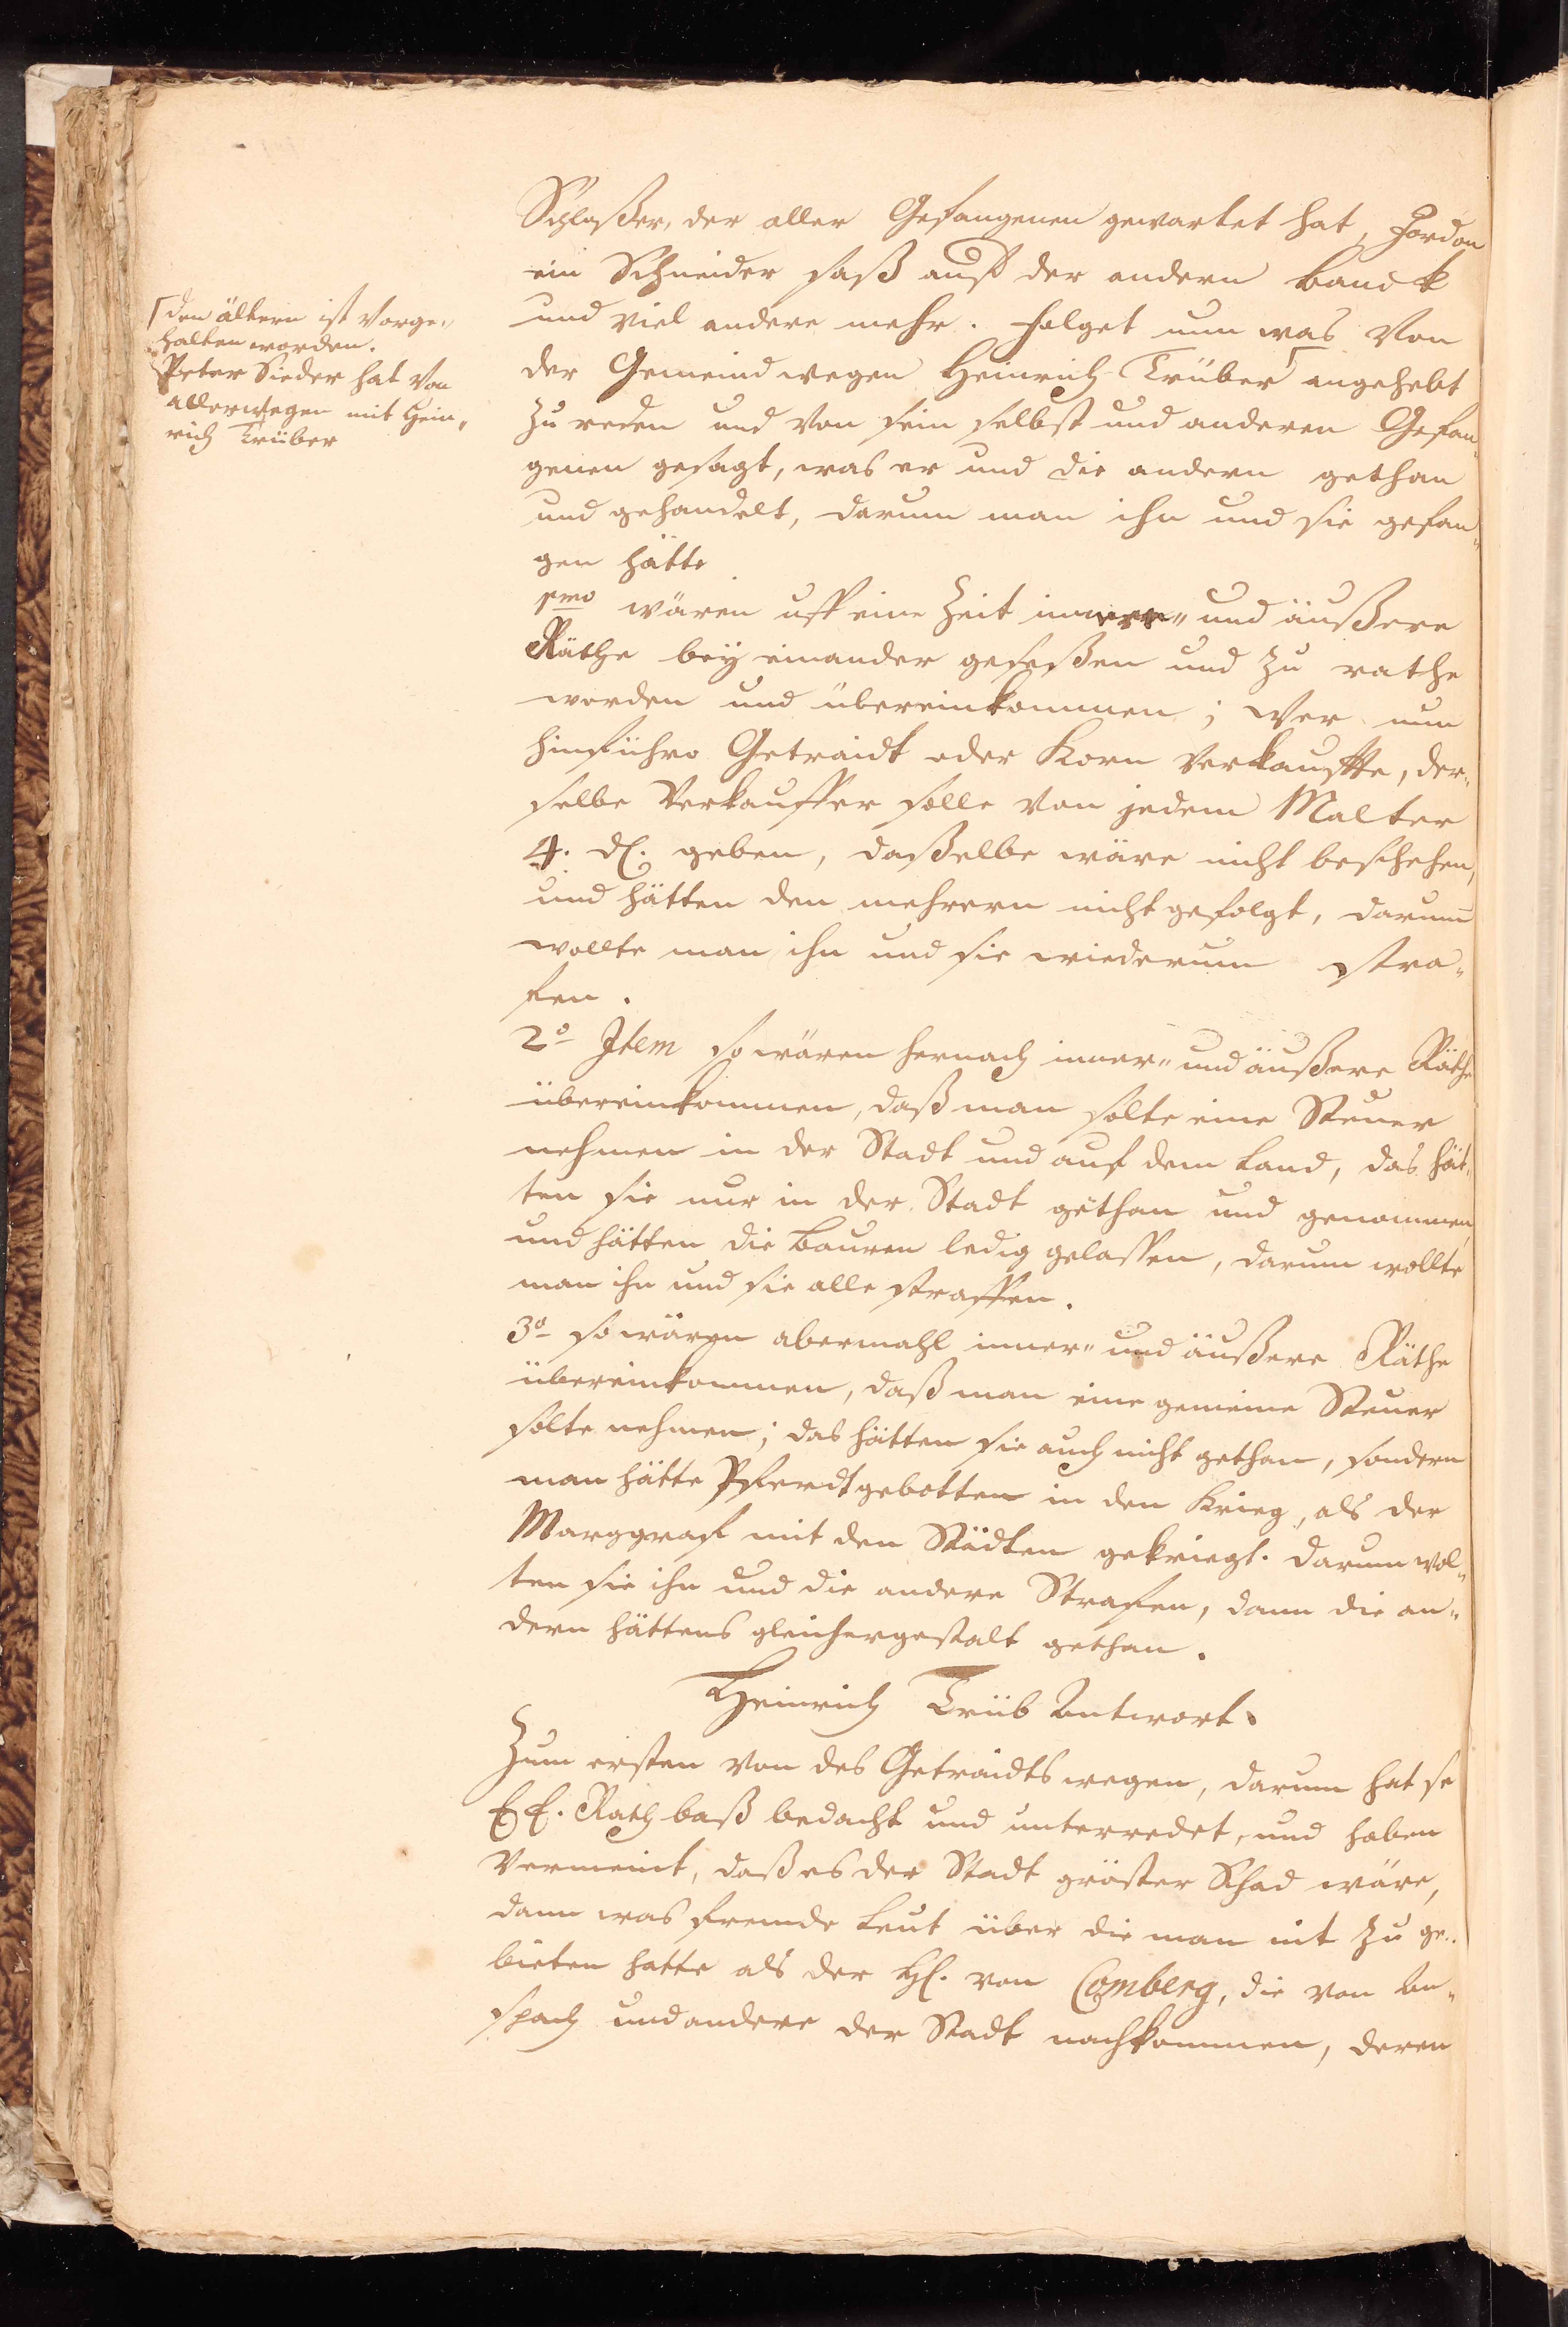 Schlosser, der aller Gefangenen gewartet hat, Jordan
ein Schneider saß auff der andern Banck
und viel andere mehr. Folget nun was von
der Gemeind wegen Heinrich Trüber angehebt
zu reden und von sein selbst und anderen Gefan„
genen gesagt, was er und die andern gethan
und gehandelt, darum man ihn und sie gefan„
gen hätte
1mo wären uff eine Zeit innere„ und äußere
Räthe bey einander geseßen und zu rathe
worden und übereinkommen; Wer nun
hinführo Getraidt oder Korn verkauffte, der„
selbe Verkauffer solle von jedem Malter
4. d. geben, daßelbe wäre nicht beschehen,
und hätten den mehrern nicht gefolgt, darum
wollte man ihn und sie wiederum stra„
fen.
2o Item so wären hernach inner„ und äußere Räthe
übereinkommen, daß man solte eine Steuer
nehmen in der Stadt und auf dem Land, das hät„
ten sie nur in der Stadt gethan und genommen,
und hätten die Bauren ledig gelassen, darum wollte
man ihn und sie alle straffen.
3o so wären abermahl inner„ und äußere Räthe
übereinkommen, daß man eine gemeine Steuer
solte nehmen; das hätten sie auch nicht gethan, sondern
man hätte Pferdt gebotten in den Krieg, als der
Marggraf mit den Städten gekriegt. Darum wol„
ten sie ihn und die andere Strafen, dann die an„
dern hättens gleichergestalt gethan.
Heinrich Trüb Antwort.
Zum ersten von des Getraidts wegen, darum hat se
E E. Rath baß bedacht und unterredet, und haben
vermeint, daß es der Stadt gröster Schad wäre,
dann was fremde Leut über die man nit zu ge„
bieten hatte als der H. von Comberg, die von An„
spach und andere der Stadt nachkommen, deren
den ältern ist vorge„
halten worden.
Peter Sieder hat von
allerwegen mit Hein„
rich Trüber